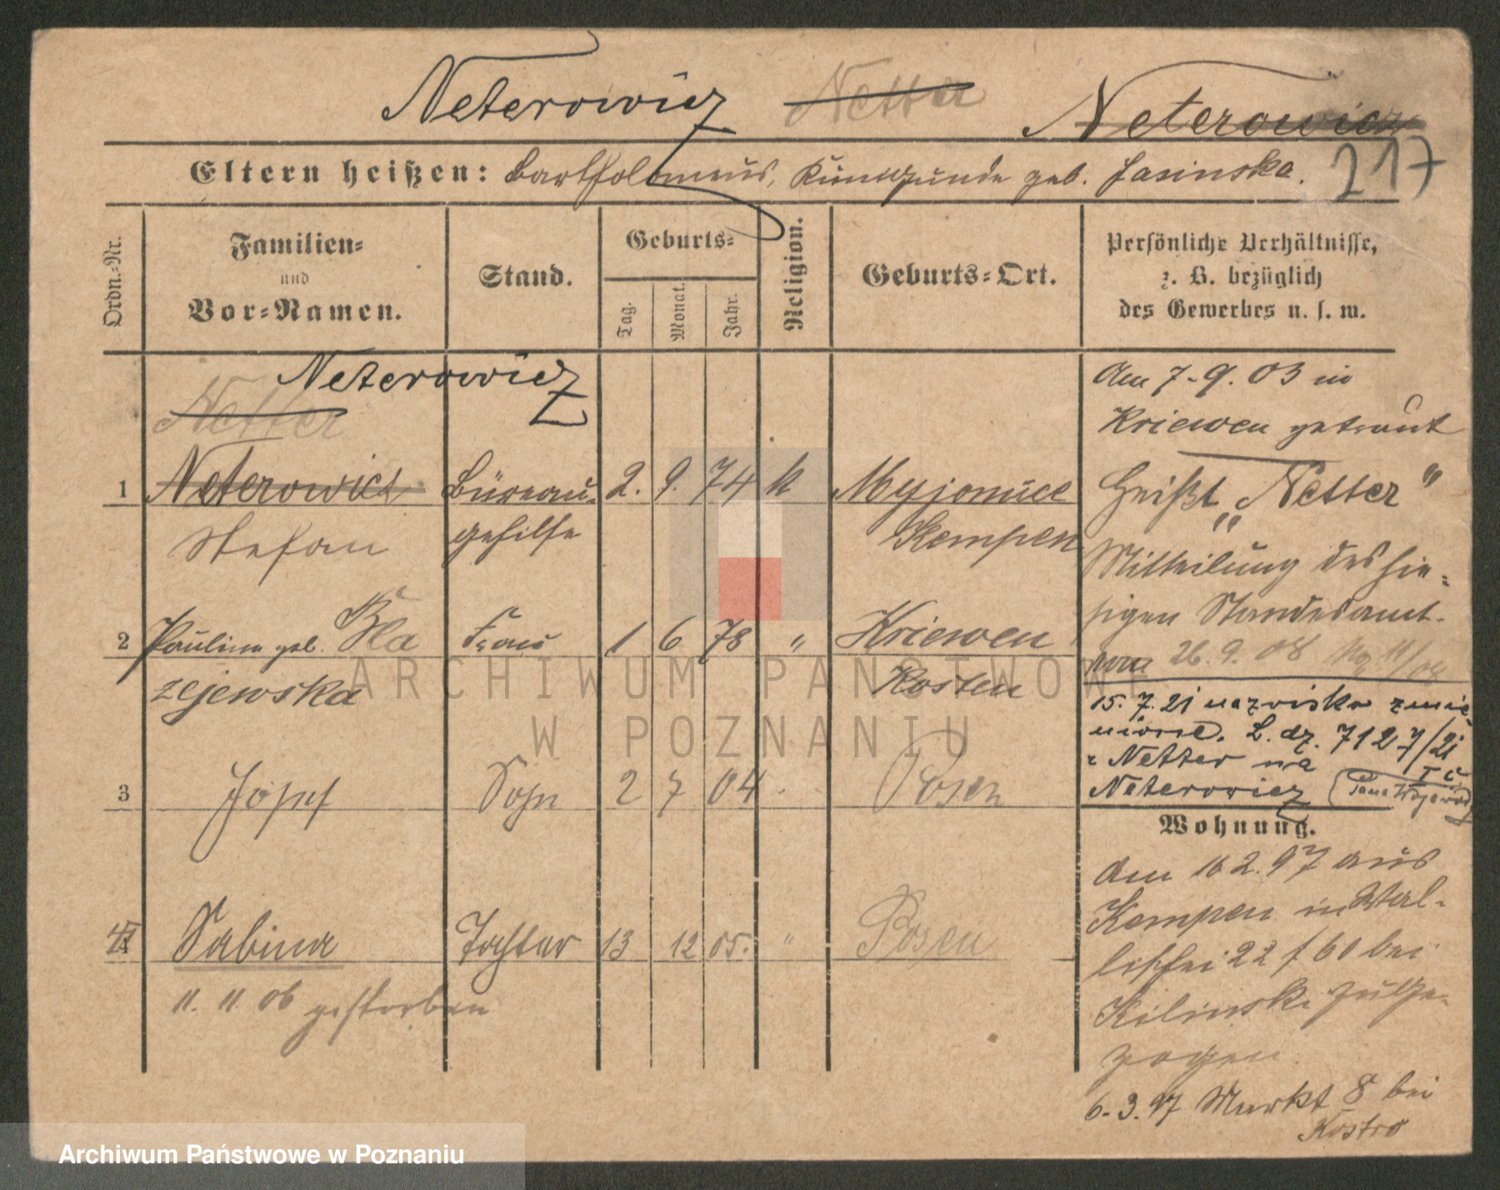 Neterowicz Netter Neterowicz
217
Eltern heißen: Bartholomeus, Kunigunde geb. Jasinska.
Ordn.-Nr.
Familien-
und
Vor-Namen.
Stand.
Geburts-
Tag.
Monat.
Jahr.
Religion.
Geburts-Ort.
Persönliche Verhältnisse,
z. B. bezüglich
des Gewerbes u. s. w.
Neterowicz
Netter
1 Neterowicz Büreau- 2. 9. 74 k Myjomice
Stefan gehilfe Kempen
2 Pauline geb. Bła Frau 1 6 78 " Kriewen
zejewska Kosten
3 Józef Sohn 2 7 04 Posen
4 Sabina Tochter 13 12 05. " Posen
11. 11. 06 gestorben
Am 7.9.03 in
Kriewen getraut
Heißt „Netter"
Mitteilung des hie-
sigen Standesamt.
vom 26.9.08
15.7.21 nazwisko zmie
nione. L. dz. 7127/21
z Netter na
Neterowicz
Wohnung.
Am 16 2. 97 aus
Kempen in Wal-
lischei 22 f 60 bei
Kilinski zuge-
zogen.
6.3.97 Markt 8 bei
Kostro
ARCHIWUM PAŃSTWOWE
W POZNANIU
Archiwum Państwowe w Poznaniu